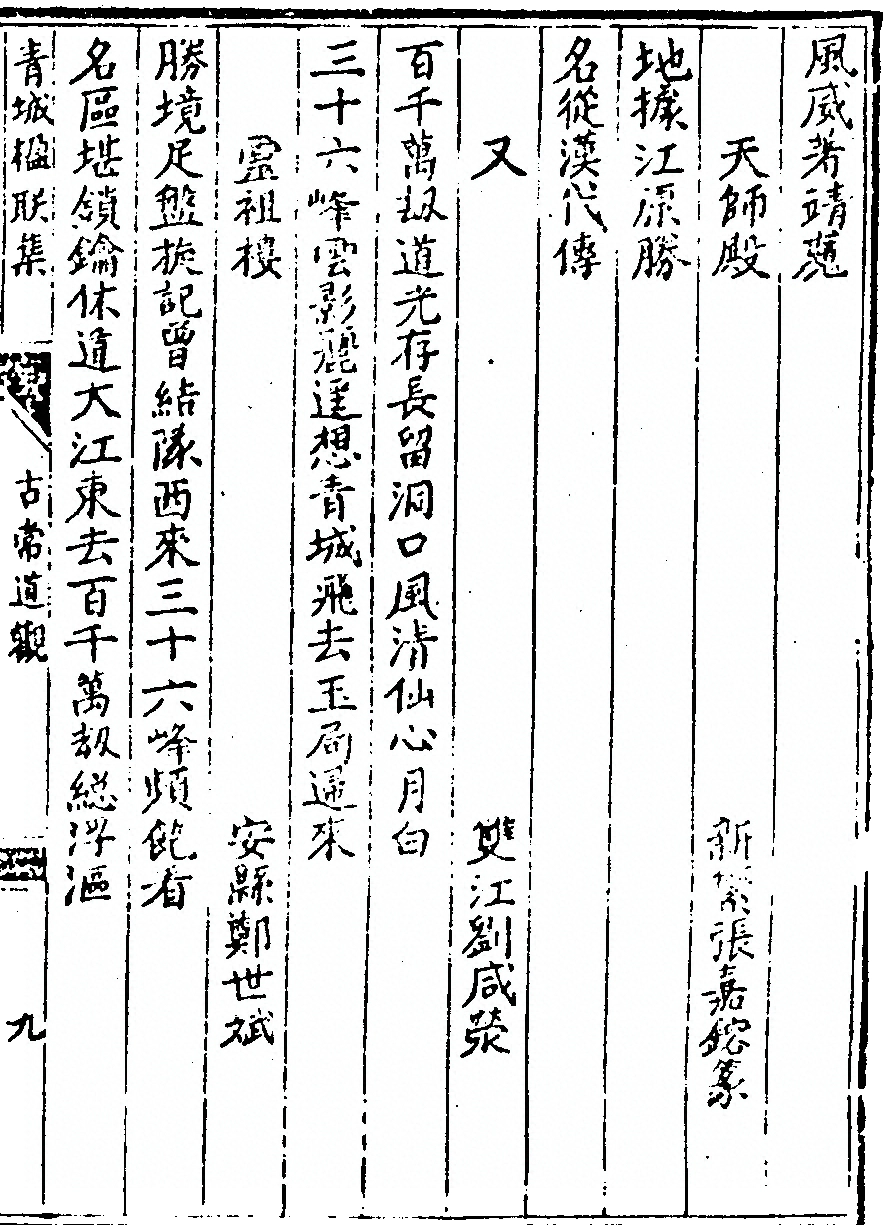 風威著靖蒐
天師殿 新繁張嘉鋐篆
地據江原勝
名從漢代傳
又 雙江劉咸滎
百千萬劫道光存長留洞口風清仙心月白
三十六峰雲影麗遥想青城飛去玉局還來
靈祖樓 安縣鄭世斌
勝境足盤旋記曾結隊西來三十六峰頻飽看
名區堪鎖鑰休道大江東去百千萬劫総浮漚
青城楹联集 古常道觀 九